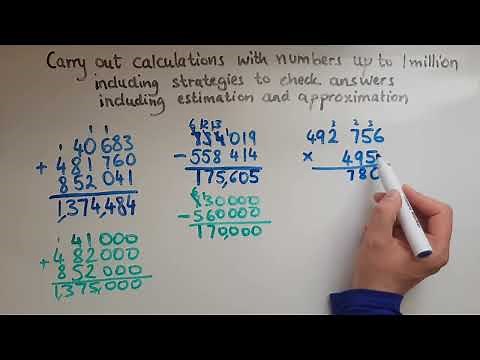 Carry out calculations with numbers up to 1million
including strategies to check answers
including estimation and approximation
1 1
1 40683
+ 481 760
852 041
1,374,484
1 41 000
+ 482 000
852 000
1,375,000
6 12 13
734 1019
- 558 414
175,605
- 560000
170,000
3 2 3
492 756
× 495
780